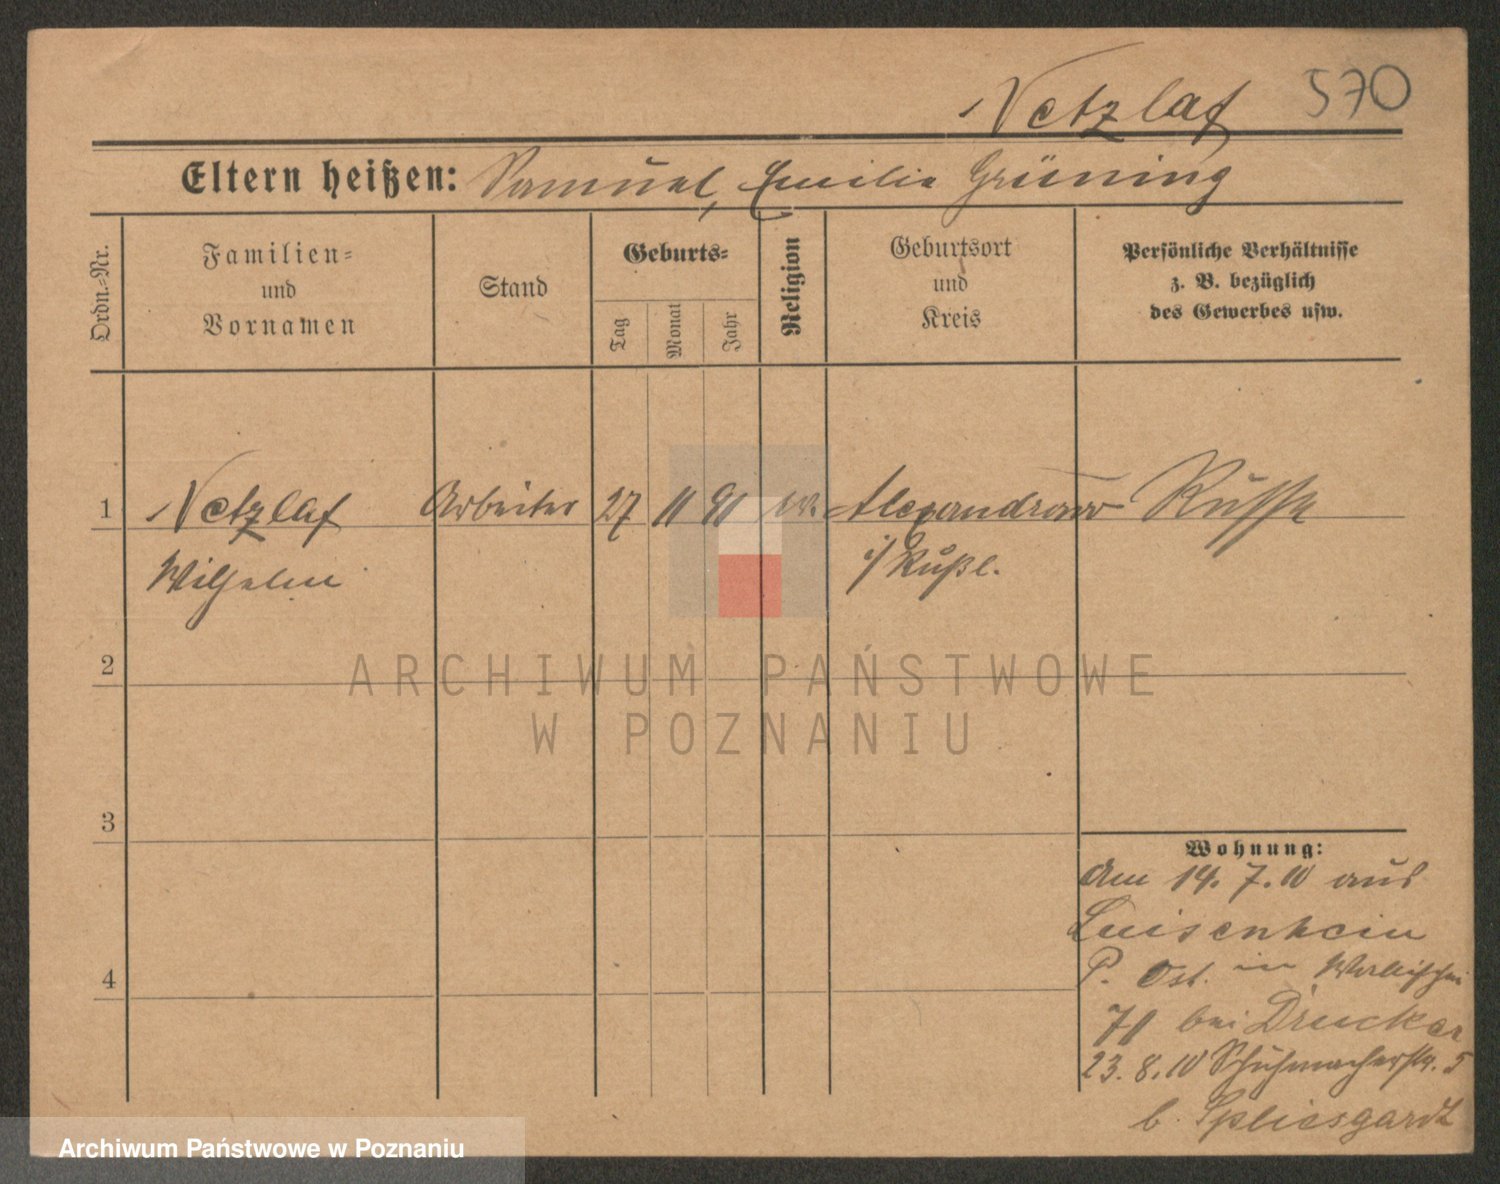 Netzlaf 570
Eltern heißen: Samuel, Emilie Grüning
Ordn.-Nr.
Familien=
und
Vornamen
Stand
Geburts=
Tag
Monat
Jahr
Religion
Geburtsort
und
Kreis
Persönliche Verhältnisse
z. B. bezüglich
des Gewerbes usw.
1 Netzlaf Arbeiter 27 11 91 Alexandrow Russe
Wilhelm i/Rußl.
2
ARCHIWUM PAŃSTWOWE
W POZNANIU
3
Wohnung:
Am 14. 7. 10 aus
Luisenhain
P. Ost. in Wallischei
71 bei Drucker
4
23. 8. 10 Schuhmacherstr. 5
b. Spliesgardt
Archiwum Państwowe w Poznaniu